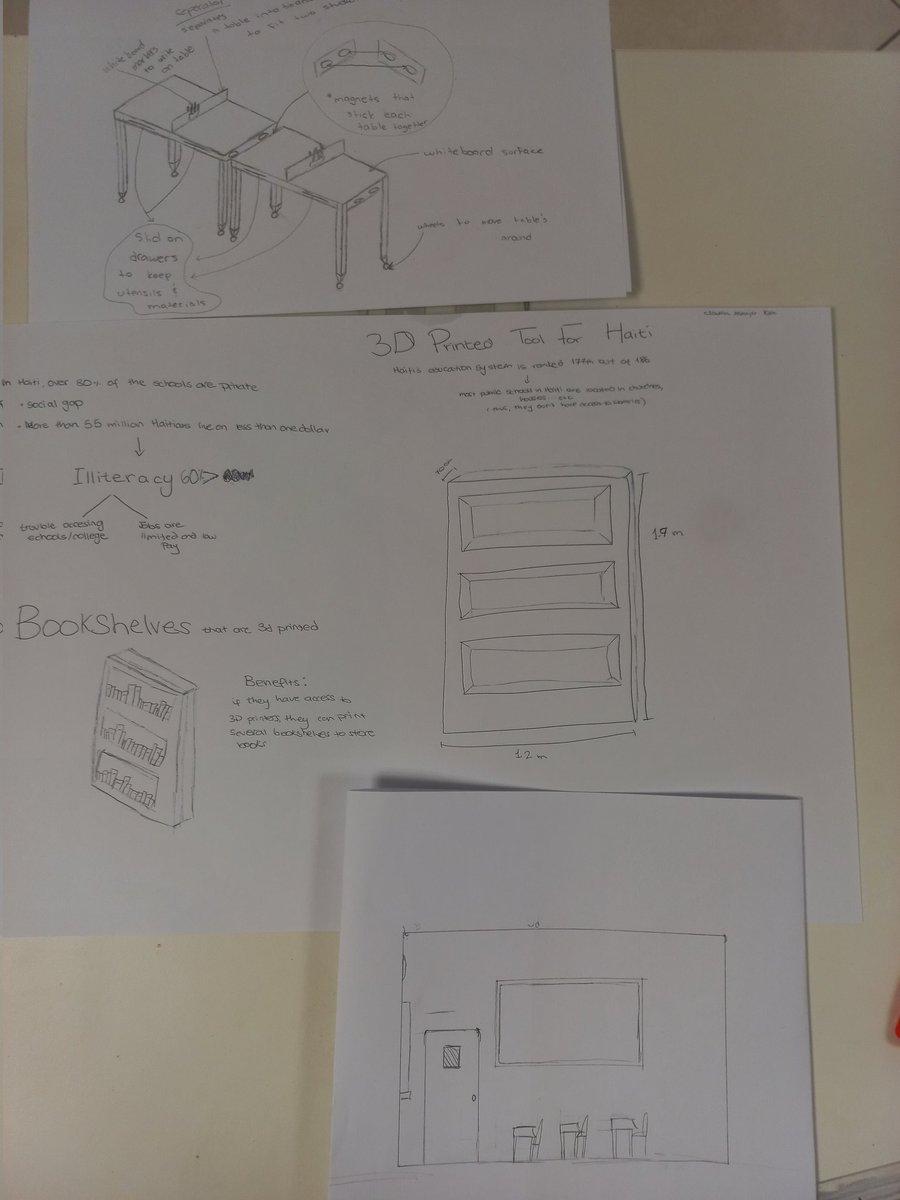 seperator
separates
a table into
to fit two
whiteboard
markers
to write
on table
*magnets that
stick each
table together
whiteboard surface
wheels to move table's
around
drawers
to keep
utensils &
materials
3D Printed Tool for Haiti
Haiti's education system is ranked 177th out of 186
most public schools in Haiti are located in churches,
houses... etc
(thus, they don't have access to libraries)
In Haiti, over 80% of the schools are private
- social gap
- More than 5.5 million Haitians live on less than one dollar
Illiteracy 60%
trouble accesing
schools/college
Jobs are
limited and low
Pay
Bookshelves that are 3d printed
Benefits:
if they have access to
3D printers, they can print
several bookshelves to store
books
1.7 m
1.2 m